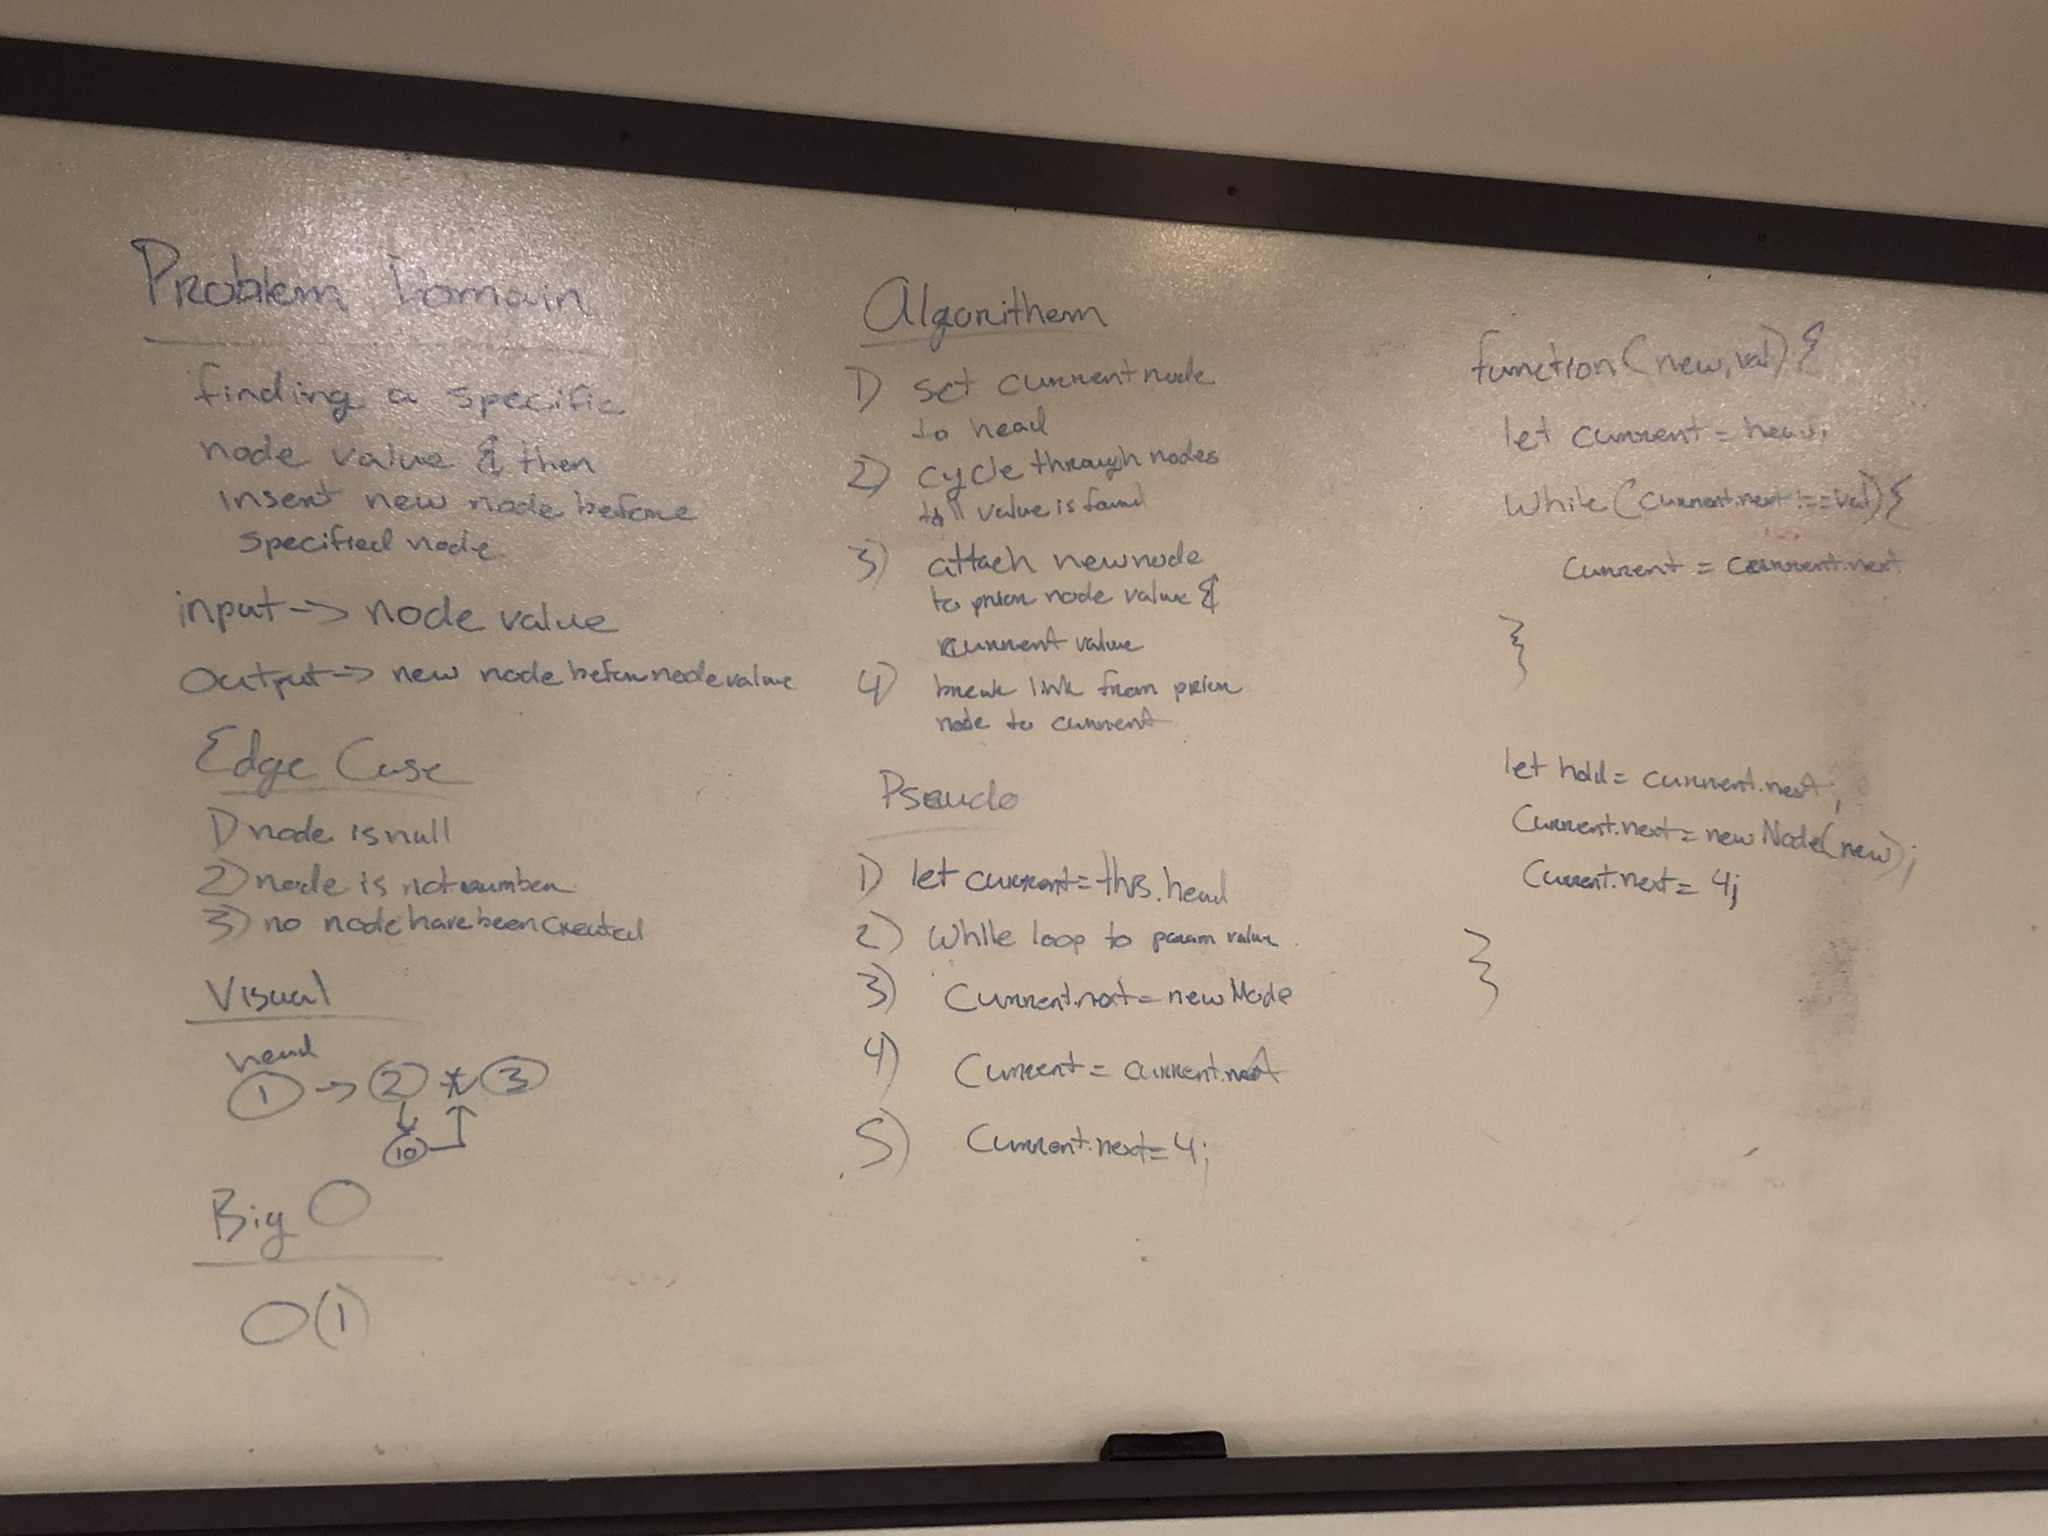 Problem Domain
finding a specific
node value & then
insert new node before
specified node
input -> node value
output -> new node before node value
Edge Case
1) node is null
2) node is not number
3) no node have been created
Visual
head
1 -> 2 x 3
10
Big O
O(1)
Algorithem
1) set current node
to head
2) cycle through nodes
till value is found
3) attach new node
to prior node value &
current value
4) break link from prior
node to current
Pseudo
1) let current = this.head
2) While loop to param value
3) Current.next = new Node
4) Current = current.next
5) Current.next = 4;
function(new, val) {
let current = head;
While (current.next !== val) {
Current = current.next
}
let hold = current.next;
Current.next = new Node(new);
Current.next = 4;
}